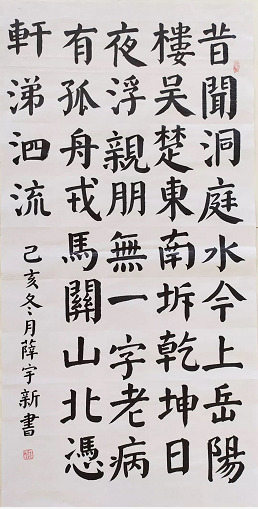 昔聞洞庭水今上岳陽
樓吳楚東南坼乾坤日
夜浮親朋無一字老病
有孤舟戎馬關山北憑
軒涕泗流
己亥冬月薛宇新書